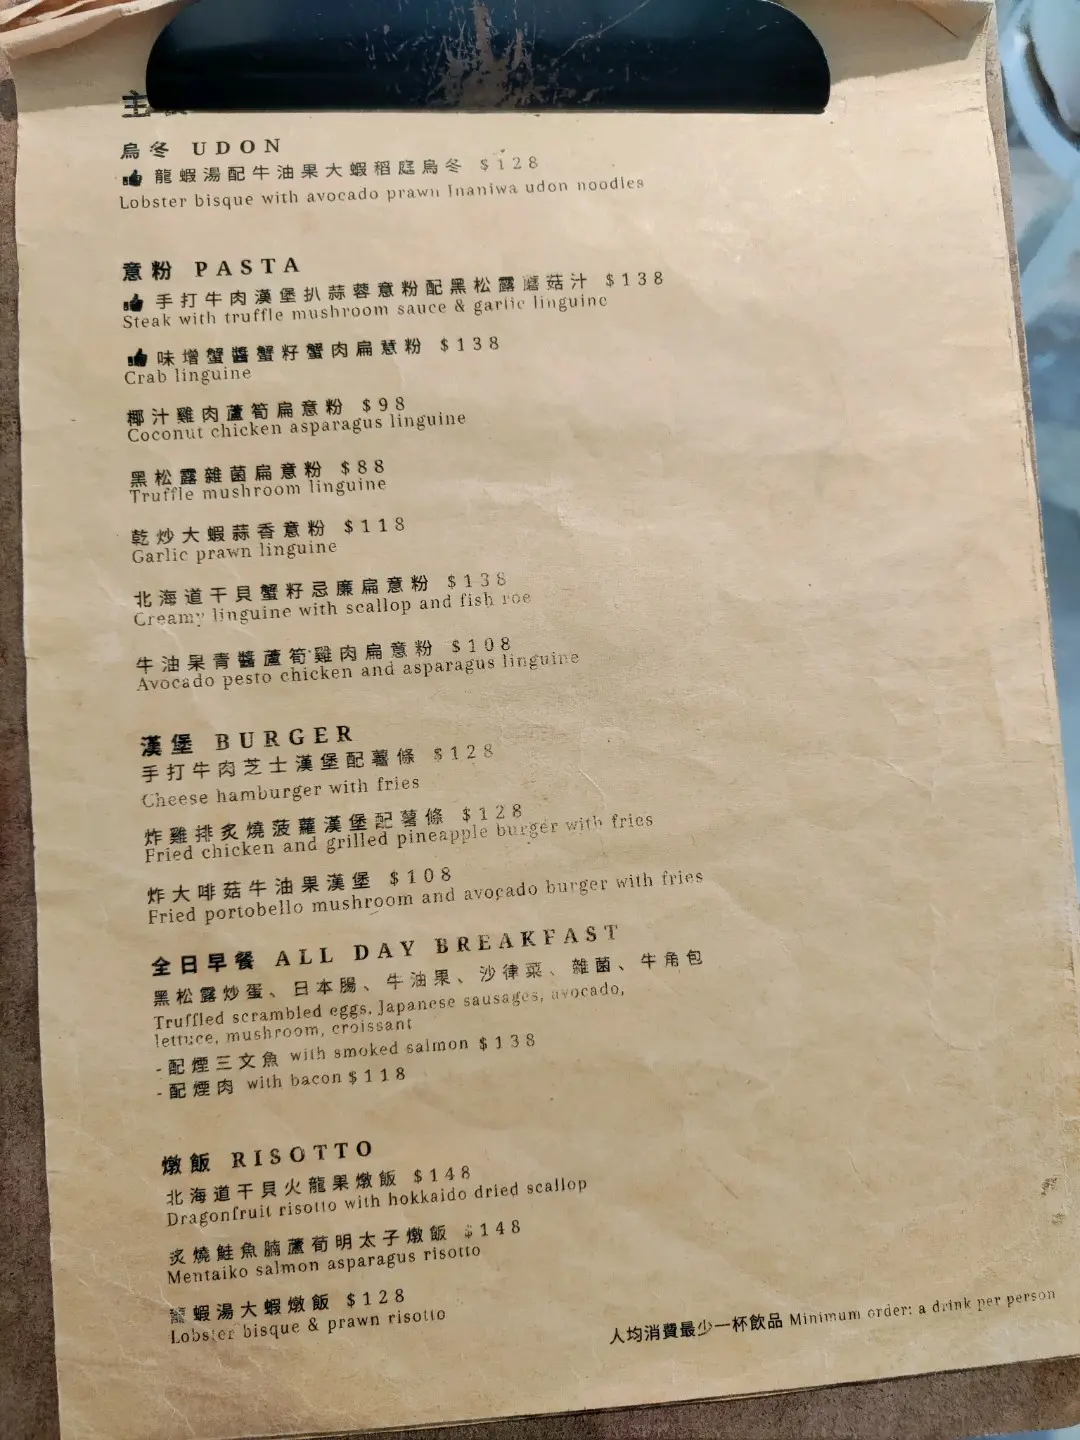 主
烏冬 UDON
龍蝦湯配牛油果大蝦稻庭烏冬 $128
Lobster bisque with avocado prawn Inaniwa udon noodles
意粉 PASTA
手打牛肉漢堡扒蒜蓉意粉配黑松露蘑菇汁 $138
Steak with truffle mushroom sauce & garlic linguine
味增蟹醬蟹籽蟹肉扁意粉 $138
Crab linguine
椰汁雞肉蘆筍扁意粉 $98
Coconut chicken asparagus linguine
黑松露雜菌扁意粉 $88
Truffle mushroom linguine
乾炒大蝦蒜香意粉 $118
Garlic prawn linguine
北海道干貝蟹籽忌廉扁意粉 $138
Creamy linguine with scallop and fish roe
牛油果青醬蘆筍雞肉扁意粉 $108
Avocado pesto chicken and asparagus linguine
漢堡 BURGER
手打牛肉芝士漢堡配薯條 $128
Cheese hamburger with fries
炸雞排炙燒菠蘿漢堡配薯條 $128
Fried chicken and grilled pineapple burger with fries
炸大啡菇牛油果漢堡 $108
Fried portobello mushroom and avocado burger with fries
全日早餐 ALL DAY BREAKFAST
黑松露炒蛋、日本腸、牛油果、沙律菜、雜菌、牛角包
Truffled scrambled eggs, Japanese sausages, avocado,
lettuce, mushroom, croissant
-配煙三文魚 with smoked salmon $138
-配煙肉 with bacon $118
燉飯 RISOTTO
北海道干貝火龍果燉飯 $148
Dragonfruit risotto with hokkaido dried scallop
炙燒鮭魚腩蘆荀明太子燉飯 $148
Mentaiko salmon asparagus risotto
龍蝦湯大蝦燉飯 $128
Lobster bisque & prawn risotto
人均消費最少一杯飲品 Minimum order: a drink per person